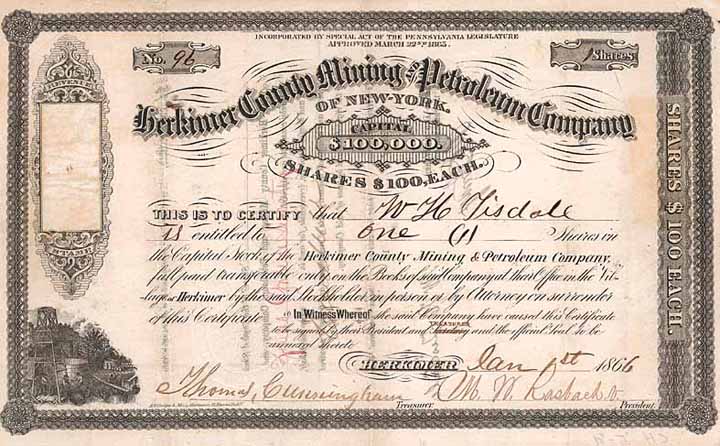 INCORPORATED BY SPECIAL ACT OF THE PENNSYLVANIA LEGISLATURE
APPROVED MARCH 22ND 1865.
No. 96
1 Shares
Herkimer County Mining AND Petroleum Company
OF NEW-YORK.
CAPITAL
$100,000.
SHARES $100, EACH.
THIS IS TO CERTIFY that W H Tisdale
is entitled to One (1) Shares in
the Capital Stock of the Herkimer County Mining & Petroleum Company,
full paid transferable only on the Books of said Company at their Office in the Vil-
lage of Herkimer by the said Stockholder in person or by Attorney on surrender
of this Certificate In Witness Whereof the said Company have caused this Certificate
TREASURER
to be signed by their President and Secretary and the official Seal to be
annexed hereto
HERKIMER Jan 1st 1866
Thomas Cunningham Treasurer. M. W. Rasbach President.
SHARES $100 EACH.